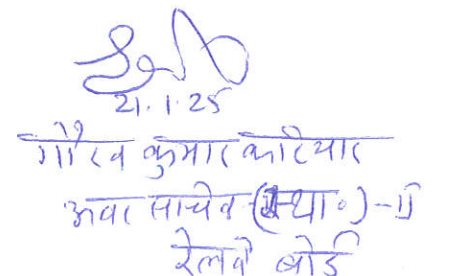 21.1.25
गौरव कुमार कटियार
अवर सचिव (स्था०)-II
रेलवे बोर्ड